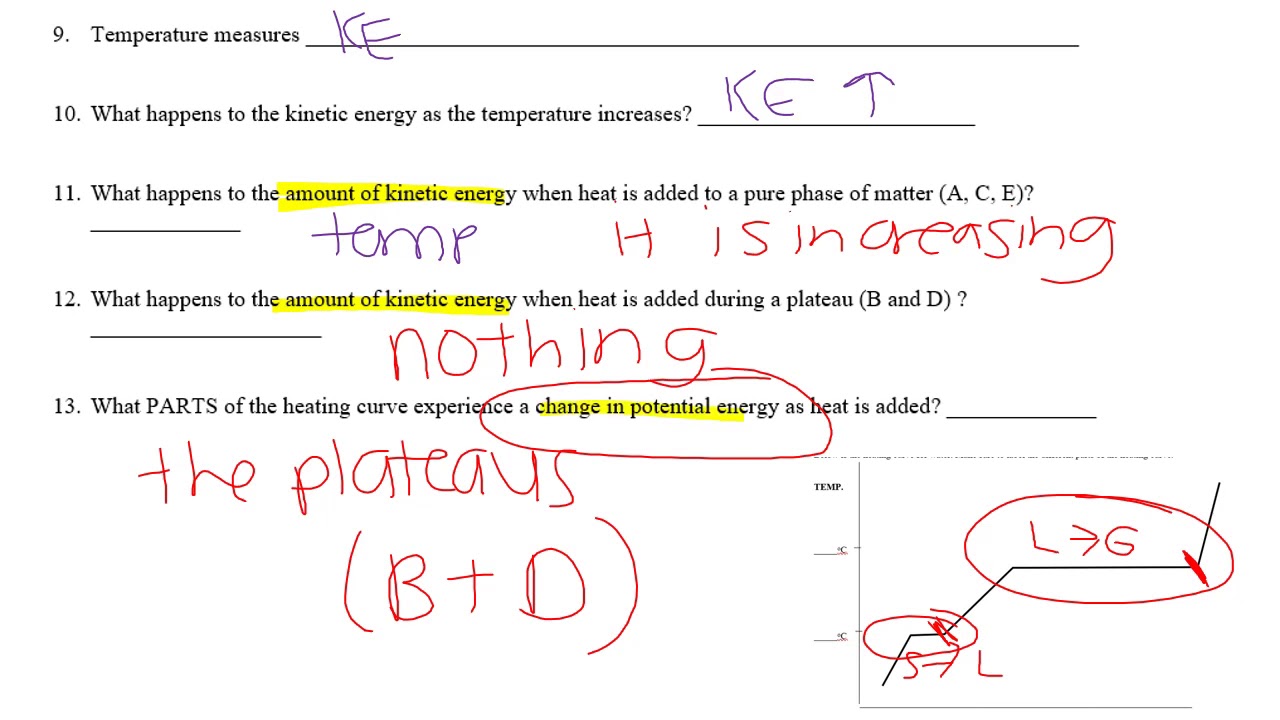 9. Temperature measures KE
10. What happens to the kinetic energy as the temperature increases? KE ↑
11. What happens to the amount of kinetic energy when heat is added to a pure phase of matter (A, C, E)?
temp It is increasing
12. What happens to the amount of kinetic energy when heat is added during a plateau (B and D) ?
nothing
13. What PARTS of the heating curve experience a change in potential energy as heat is added?
the plateaus
(B + D)
TEMP.
L → G
°C
°C
S → L